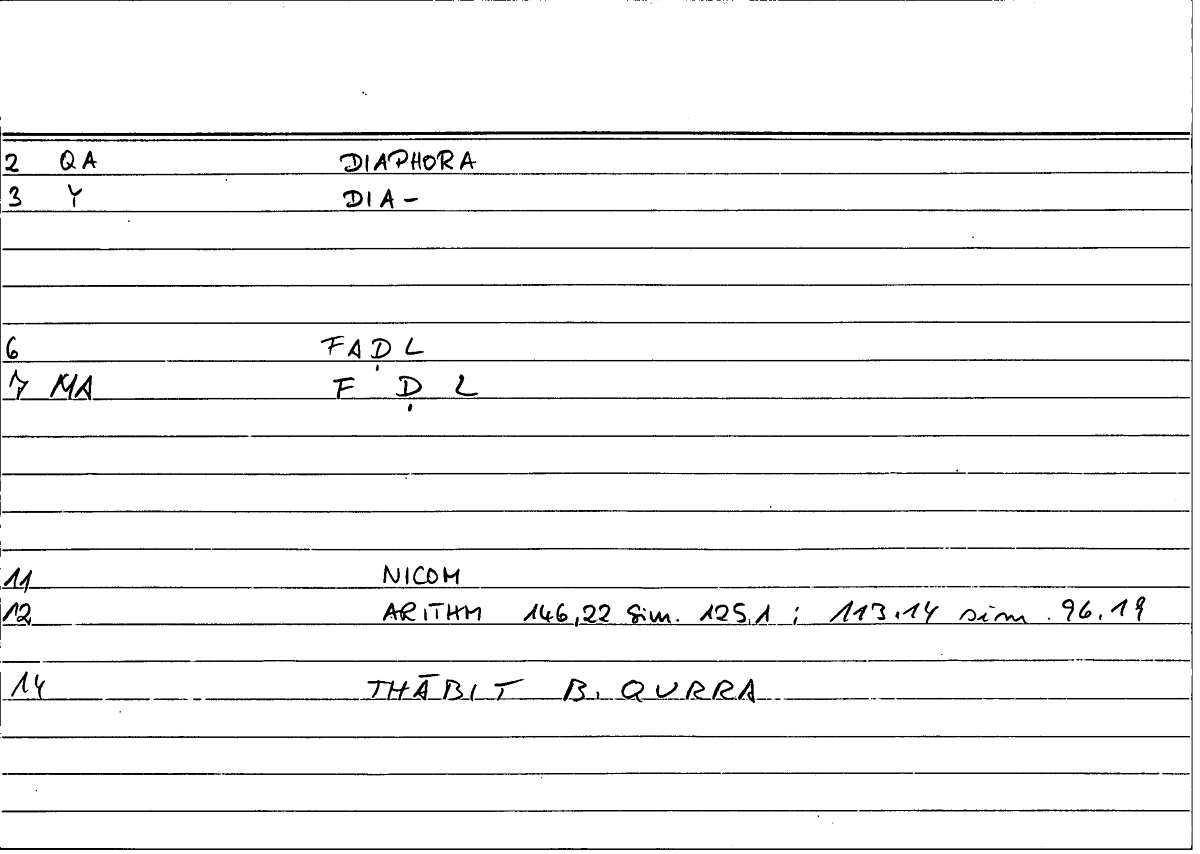 2 QA DIAPHORA
3 Y DIA-
6 FAḌL
7 MA F Ḍ L
11 NICOM
12 ARITHM 146,22 sim. 125,1 ; 113.14 sim. 96.19
14 THĀBIT B. QURRA